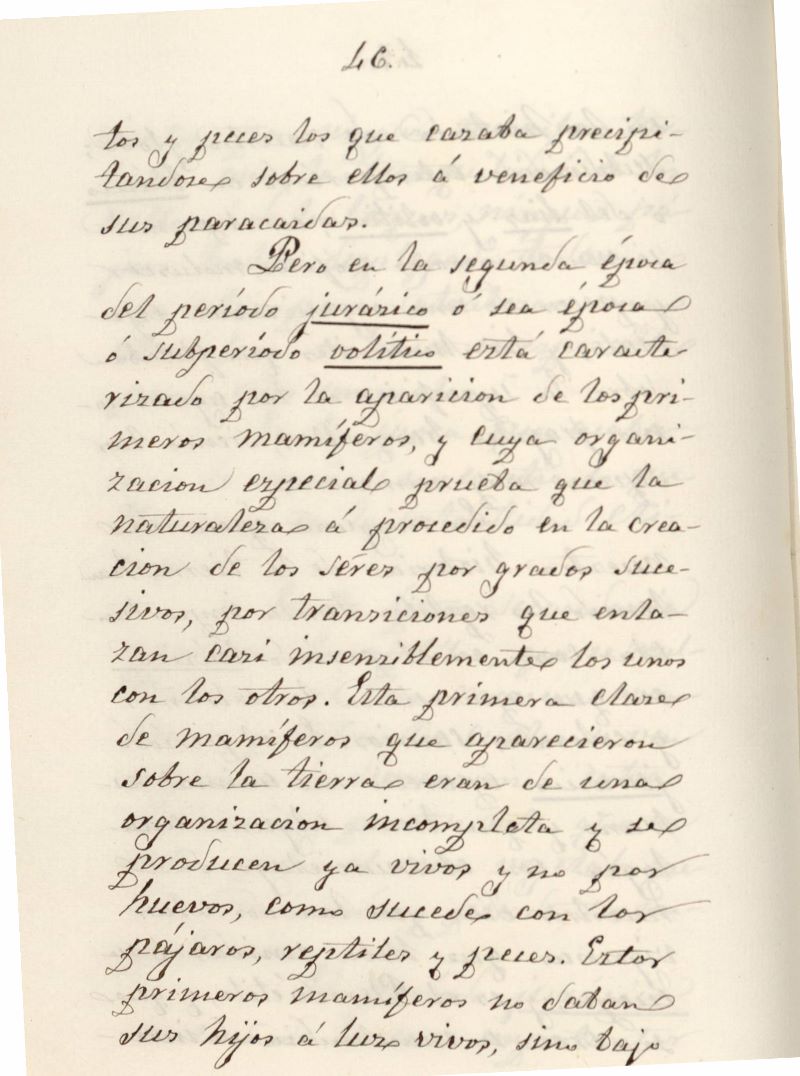 46.
tos y peces los que cazaba precipi-
tandose sobre ellos á veneficio de
sus paracaidas.
Pero en la segunda época
del período jurásico ó sea época
ó subperíodo oolítico está caracte-
rizado por la aparicion de los pri-
meros mamíferos, y cuya organi-
zacion especial prueba que la
naturaleza á procedido en la crea-
cion de los séres por grados suce-
sivos, por transiciones que enla-
zan casi insensiblemente los unos
con los otros. Esta primera clase
de mamíferos que aparecieron
sobre la tierra eran de una
organizacion incompleta y se
producen ya vivos y no por
huevos, como sucede con los
pájaros, reptiles y peces. Estos
primeros mamíferos no daban
sus hijos á luz vivos, sino bajo